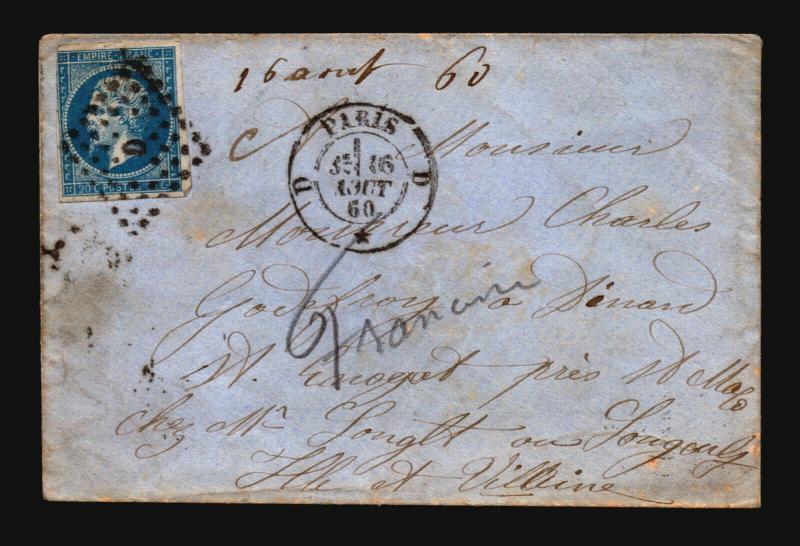 EMPIRE FRANC
20 C POSTES C
D
16 aout 60
PARIS
16
AOUT
60
D D
A Monsieur
Monsieur Charles
Godefroy à Dinard
St Enogat près St Malo
chez Mr ou
Ille et Villaine
6